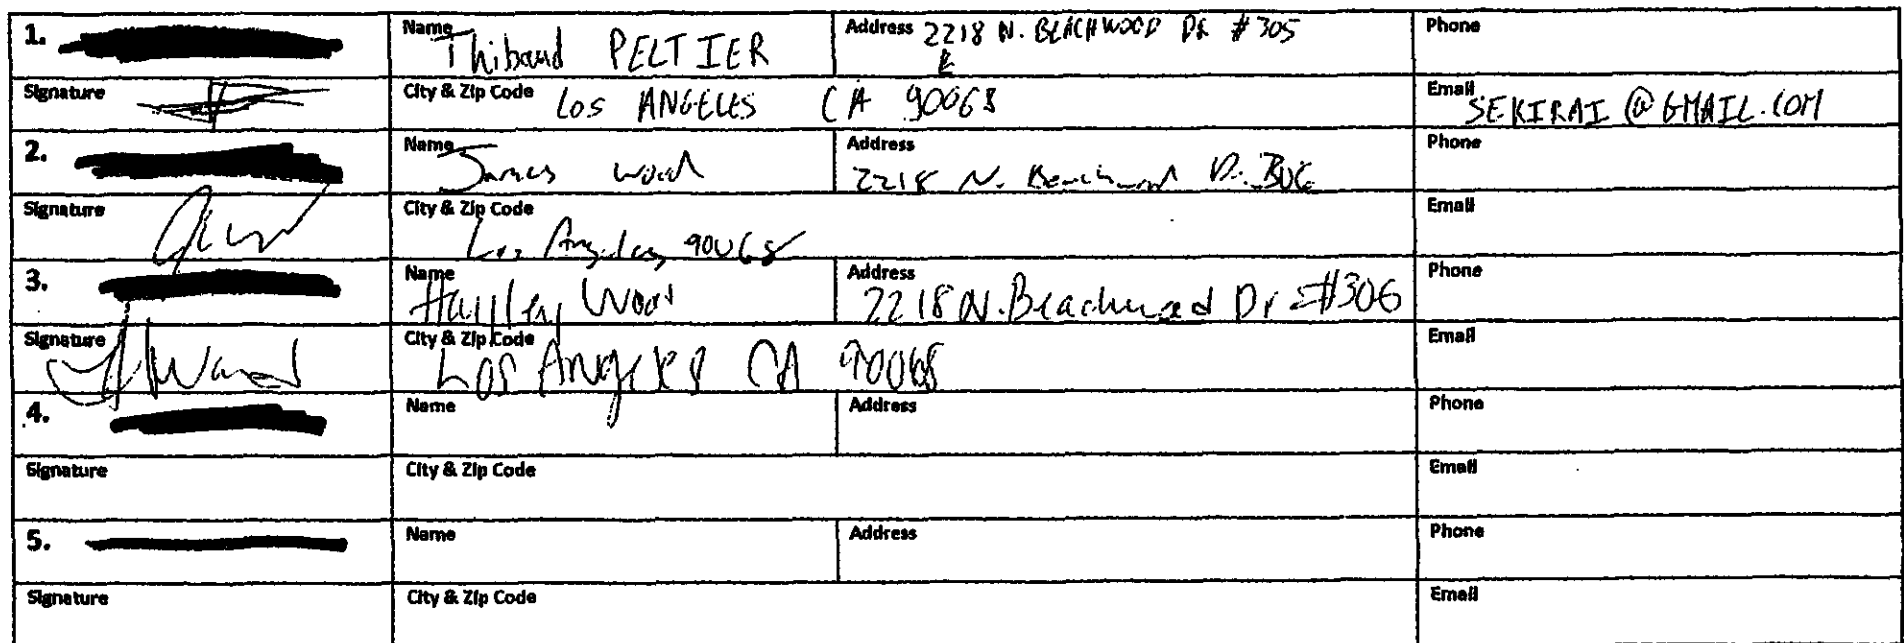 1. Name Thibaud PELTIER Address 2218 N. BEACHWOOD DR #305 Phone
Signature City & Zip Code Los ANGELES CA 90068 Email SEKIRAI@GMAIL.COM
2. Name James Wood Address 2218 N. Beachwood Dr. Phone
Signature City & Zip Code Los Angeles 90068 Email
3. Name Hayley Wood Address 2218 N. Beachwood Dr #306 Phone
Signature City & Zip Code Los Angeles CA 90068 Email
4. Name Address Phone
Signature City & Zip Code Email
5. Name Address Phone
Signature City & Zip Code Email